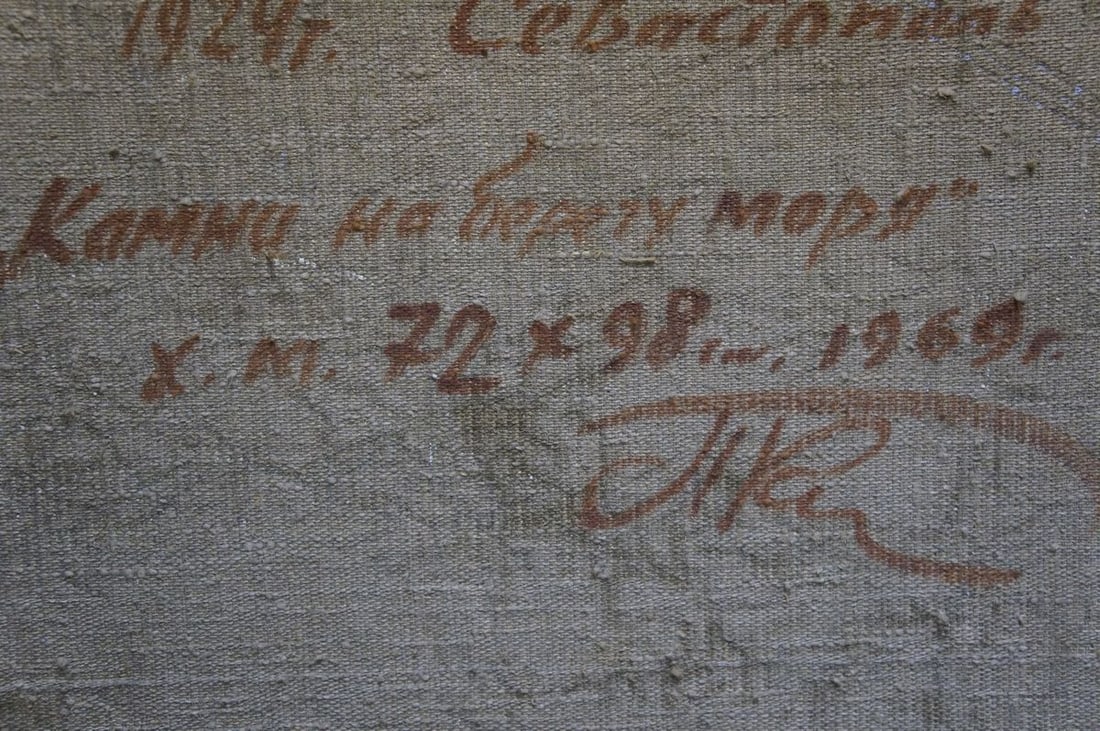 1924г. Севастополь
„Камни на берегу моря"
х. м. 72 х 98 см, 1969г.